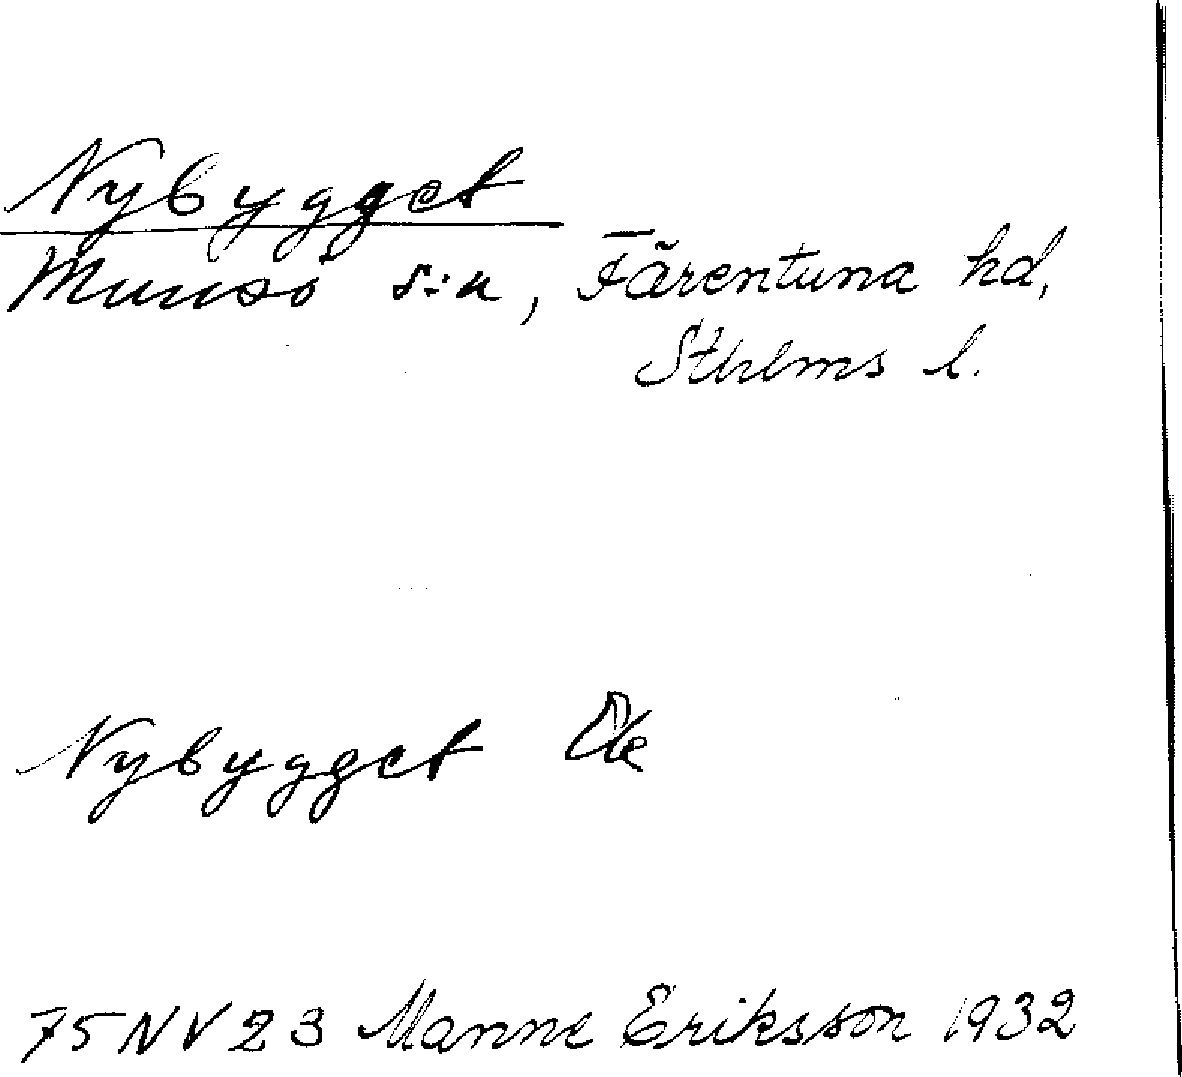 Nybygget
Munsö s:n, Färentuna hd,
Sthlms l.
Nybygget
75 NV 23 Manne Eriksson 1932